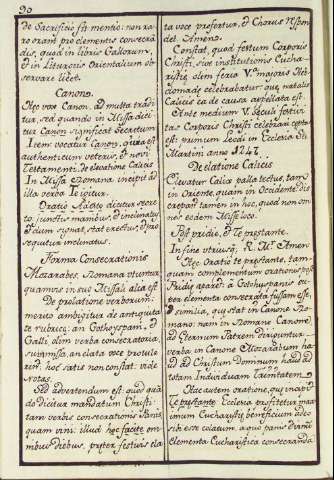 20
de Sacrificio fit mentio: non ra
ro oram pro elementis consecra
dis, quod in libris Gallorum,
et in Liturgiis Orientalium ob
servare libet.
Canon.
Hæc vox Canon, ad multa tradi
tur, sed quando in Missa dici
tur Canon significat Secretum
Item vocatur Canon, quia est
authenticum veteris, et novi
Testamenti. de elevatione Calicis
In Missa Romana incipit ad
illa verba Te igitur.
Oratio Adesto dicitur secre
to junctis manibus, et inclinatus
et cum signat, stat erectus, et pro
sequitur inclinatus.
Forma Consecrationis
Mozarabes, Romana utuntur
quamvis in suo Missali alia est
De prolatione verborum
merito ambigitur de antiquita
te rubricæ: an Gothyspani, et
Galli, olim verba consecratoria,
submissa, an elata voce protule
rint: hoc satis non constat. vide
notas.
Sed advertendum est: quod quan
do dicitur mandatum Christi
tam verbis consecrationis Panis
quam vini: illud hoc facite om
nibus diebus, præter festivis ela
ta voce profertur, et Chorus respon
det. Amen.
Constat, quod festum Corporis
Christi, sive institutionis Eucha-
ristiæ, olim feria V.ª maioris Heb
domadæ celebrabatur: quæ natalis
Calicis ea de causa appellata est.
Ante medium V. Sæculi festivi
tas Corporis Christi celebrari cœpta
est: primum Leodi in Ecclesia Sti
Martini anno 1247.
De elatione Calicis
Elevatur Calix palla tectus, tam
in Oriente, quam in Occidente, dis
crepant tamen in hoc, quod non om
nes eodem Missæ loco.
Post pridie, et Te præstante.
In fine utriusque. R. M.ª Amen
Hæc Oratio te præstante, tam
quam complementum orationis post
Pridie apud et à Gothyspanis su
per elementa consecrata fusam esse,
et similia, quæ stat in Canone Ro
mano: nam in Romano Canone,
ad Æternum Patrem diriguntur
verba. in Canone Mozarabum haud
ad Christum Dominum haud ad
totam Individuam Trinitatem.
Hac autem oratione, quæ incipit
Te præstante Ecclesia profitetur ma
ximum Eucharistiæ beneficium ades
sibi esse colatum. atque panis divini
elementa Eucharistica consecranda